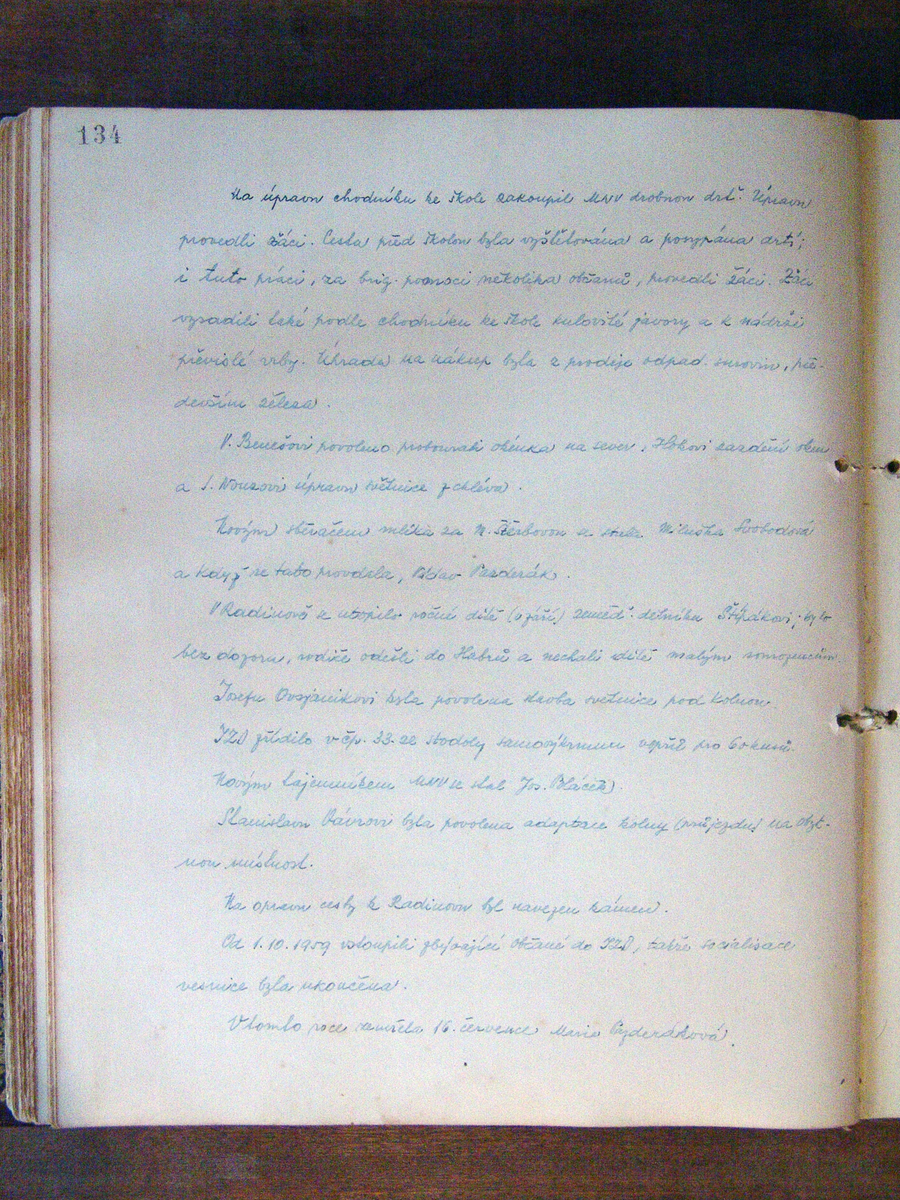 134
Na úpravu chodníku ke škole zakoupil MNV drobnou drť. Úpravu
provedli žáci. Cesta před školou byla vyštětována a posypána drtí;
i tuto práci, za brig. pomoci několika občanů, provedli žáci. Žáci
vysadili také podle chodníku ke škole kulovité javory a k nádrži
převislé vrby. Úhrada na nákup byla z prodeje odpad. surovin, pře-
devším železa.
V. Benešovi povoleno probourati okénka na sever, zazdění oken
a J. Nouzovi úpravu světnice z chléva.
Novým sběračem mléka za M. se stala Miluška Svobodová
a když se tato provdala, Pazderák.
V Radinově se utopilo roční dítě (v září) zeměd. dělníku Štěpákovi; bylo
bez dozoru, rodiče odešli do Habrů a nechali dítě malým sourozencům.
Josefu Ovsjanikovi byla povolena stavba světnice pod kolnou.
JZD zřídilo v čp. 33 ze stodoly samovýkrmnu vepřů pro 60 kusů.
Novým tajemníkem MNV se stal Jos. Ptáček.
Stanislavu Vávrovi byla povolena adaptace kolny (průjezdu) na obyt-
nou místnost.
Na opravu cesty k Radinovu byl navezen kámen.
Od 1. 10. 1959 vstoupili zbývající občané do JZD, takže socialisace
vesnice byla ukončena.
V tomto roce zemřela 16. července Marie